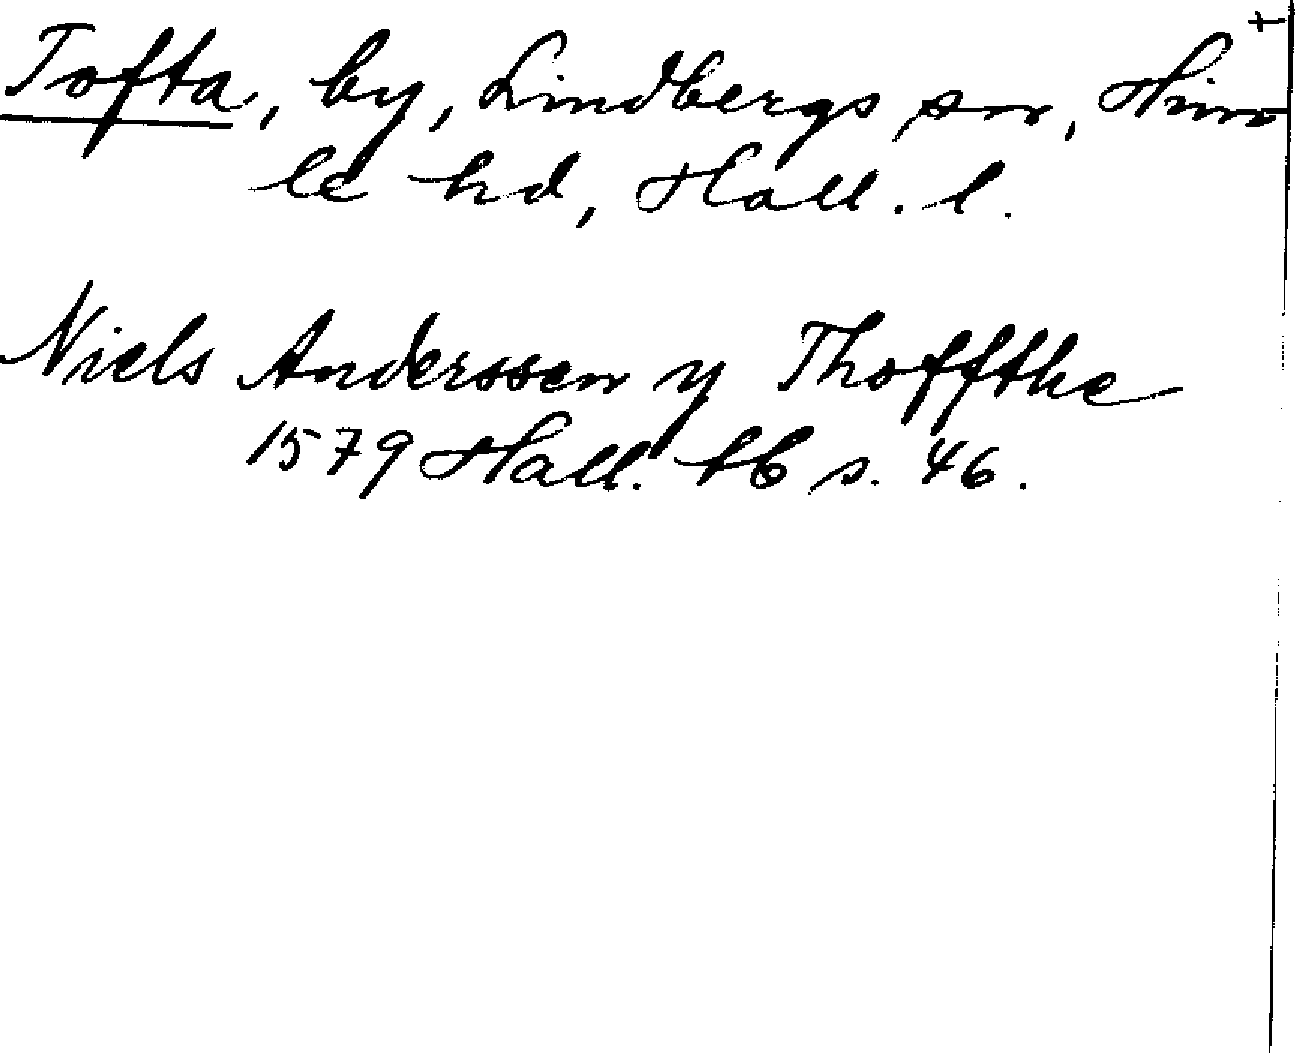 +
Tofta, by, Lindbergs sn, Him
le hd, Hall. l.
Niels Anderssen y Thoffthe
1579 Hall. tb s. 46.